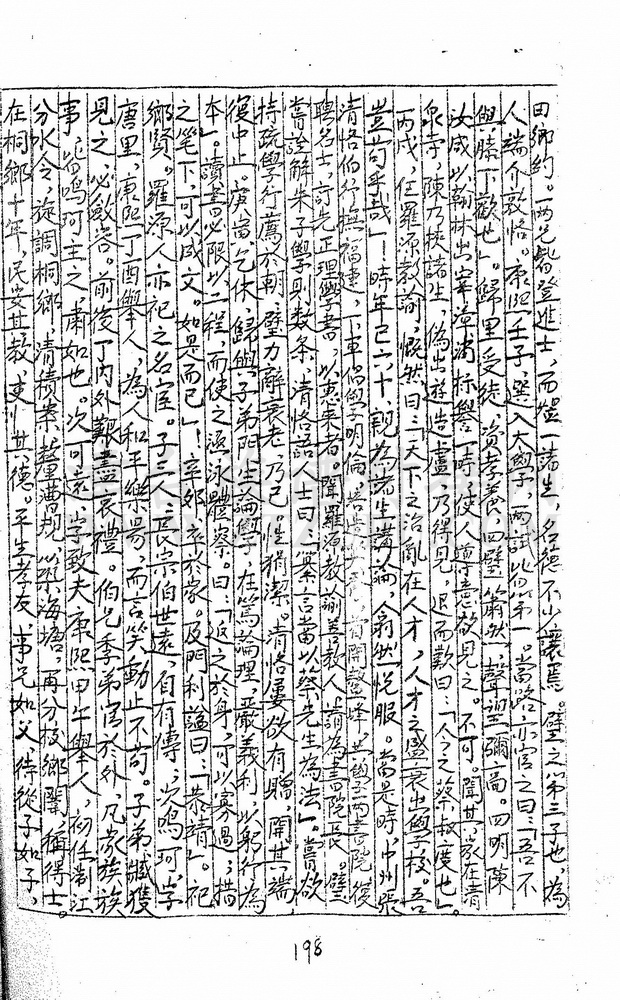 田鄉約。兩兄皆登進士，而璧一諸生，名德不少讓焉。璧之第三子也，為
人端介敦恪。康熙壬子，選入太學，兩試皆第一。當路亦官之曰：「吾不
與膝下歡也」。歸里受徒，資孝養，四壁蕭然，聲望彌高。四明陳
汝咸以翰林出宰漳浦，採譽一時，使人導意欲見之。不可。聞其家在清
泉寺，陳乃挾諸生，偽出遊造廬，乃得見。退而歎曰：「今之蔡叔度也」。
丙戌，任羅源教諭，慨然曰：「天下之治亂在人才，人才之盛衰出學校。吾
豈苟乎哉」！時年已六十，親為諸生講論，翕然悅服。當是時，中州張
清恪伯行撫福建，下車倡學明倫，首開鰲峰，共學兩書院，復
聘名士，訂先正理學書，以惠來者。聞羅源教諭善教人，請為書院長。璧
嘗詮解朱子學則數条，清恪語人士曰：「纂言當以蔡先生為法」。嘗欲
特疏學行薦於朝，璧力辭衰老，乃已。性狷潔。清恪屢欲有贈，開其端
復中止。廬峕乞休，歸與子弟閉坐論學，在篤論理，嚴義利，以躬行為
本。讀書必限以一程，而使之涵泳體察。曰：「返之於身，可以寡過；措
之筆下，可以成文。如是而已」！卒於家。及門私謚曰：「恭靖」。祀
鄉賢。羅源人亦祀之名宦。子三人：長宗伯世遠，自有傳；次鳴珂，字
唐里，康熙丁酉舉人，為人和平樂易，而言笑動止不苟。子弟臧獲
見之，必斂容。前後丁內外艱，盡哀禮。伯兄季弟官於外，凡家族族
事，皆鳴珂主之，肅如也。次可遠，字致夫，康熙甲午舉人，初任浙江
分水令，旋調桐鄉，清積案，釐曹規，築海塘，再分校鄉闈，稱得士。
在桐鄉十年，民安其教，吏懷其德。平生孝友，事兄如父，待從子如子，
198